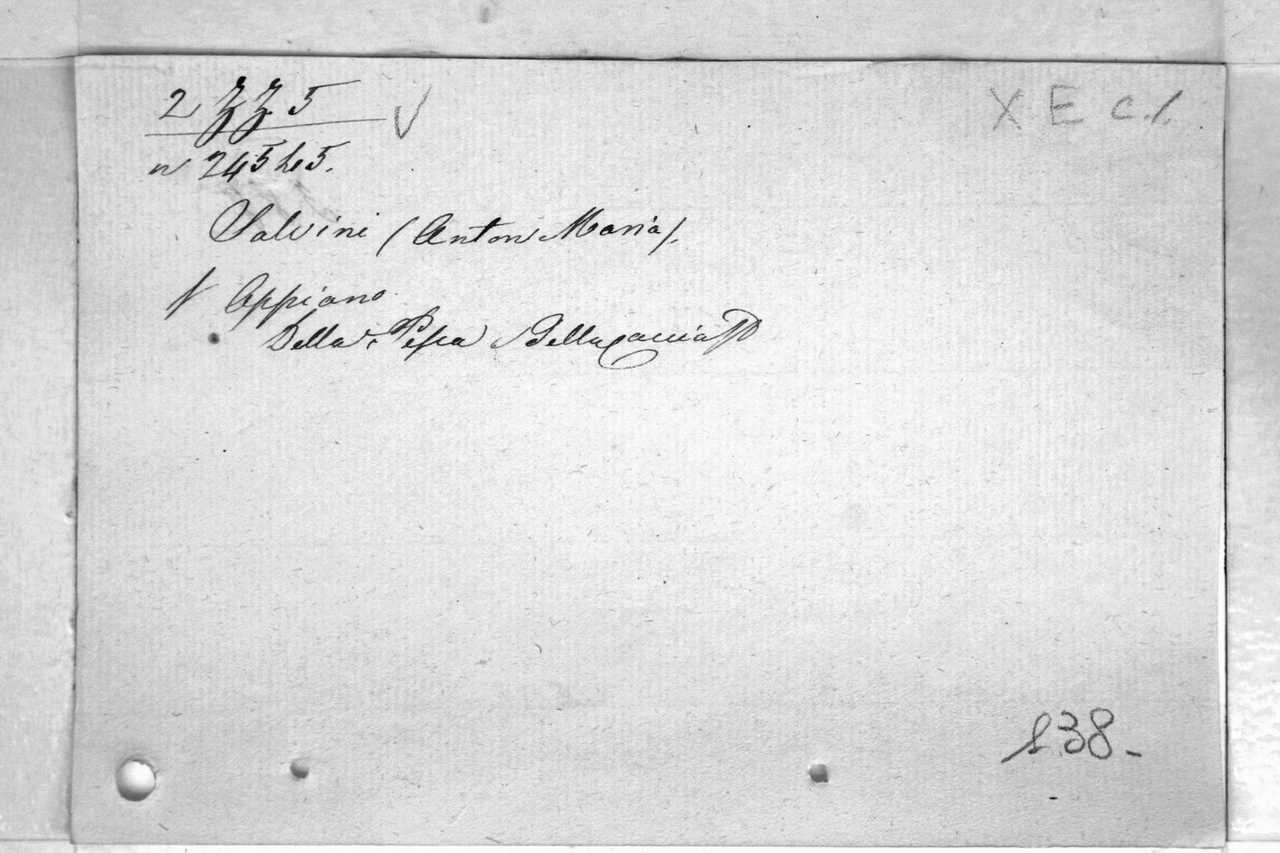 2 ZZ 5 V
X E c.1.
n 245 h 5.
Salvini (Anton Maria).
V Appiano
Della Pesca Della Caccia
138-